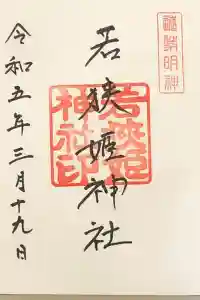 遠敷明神
若狭姫神社
若狹姫
神社印
令和五年三月十九日